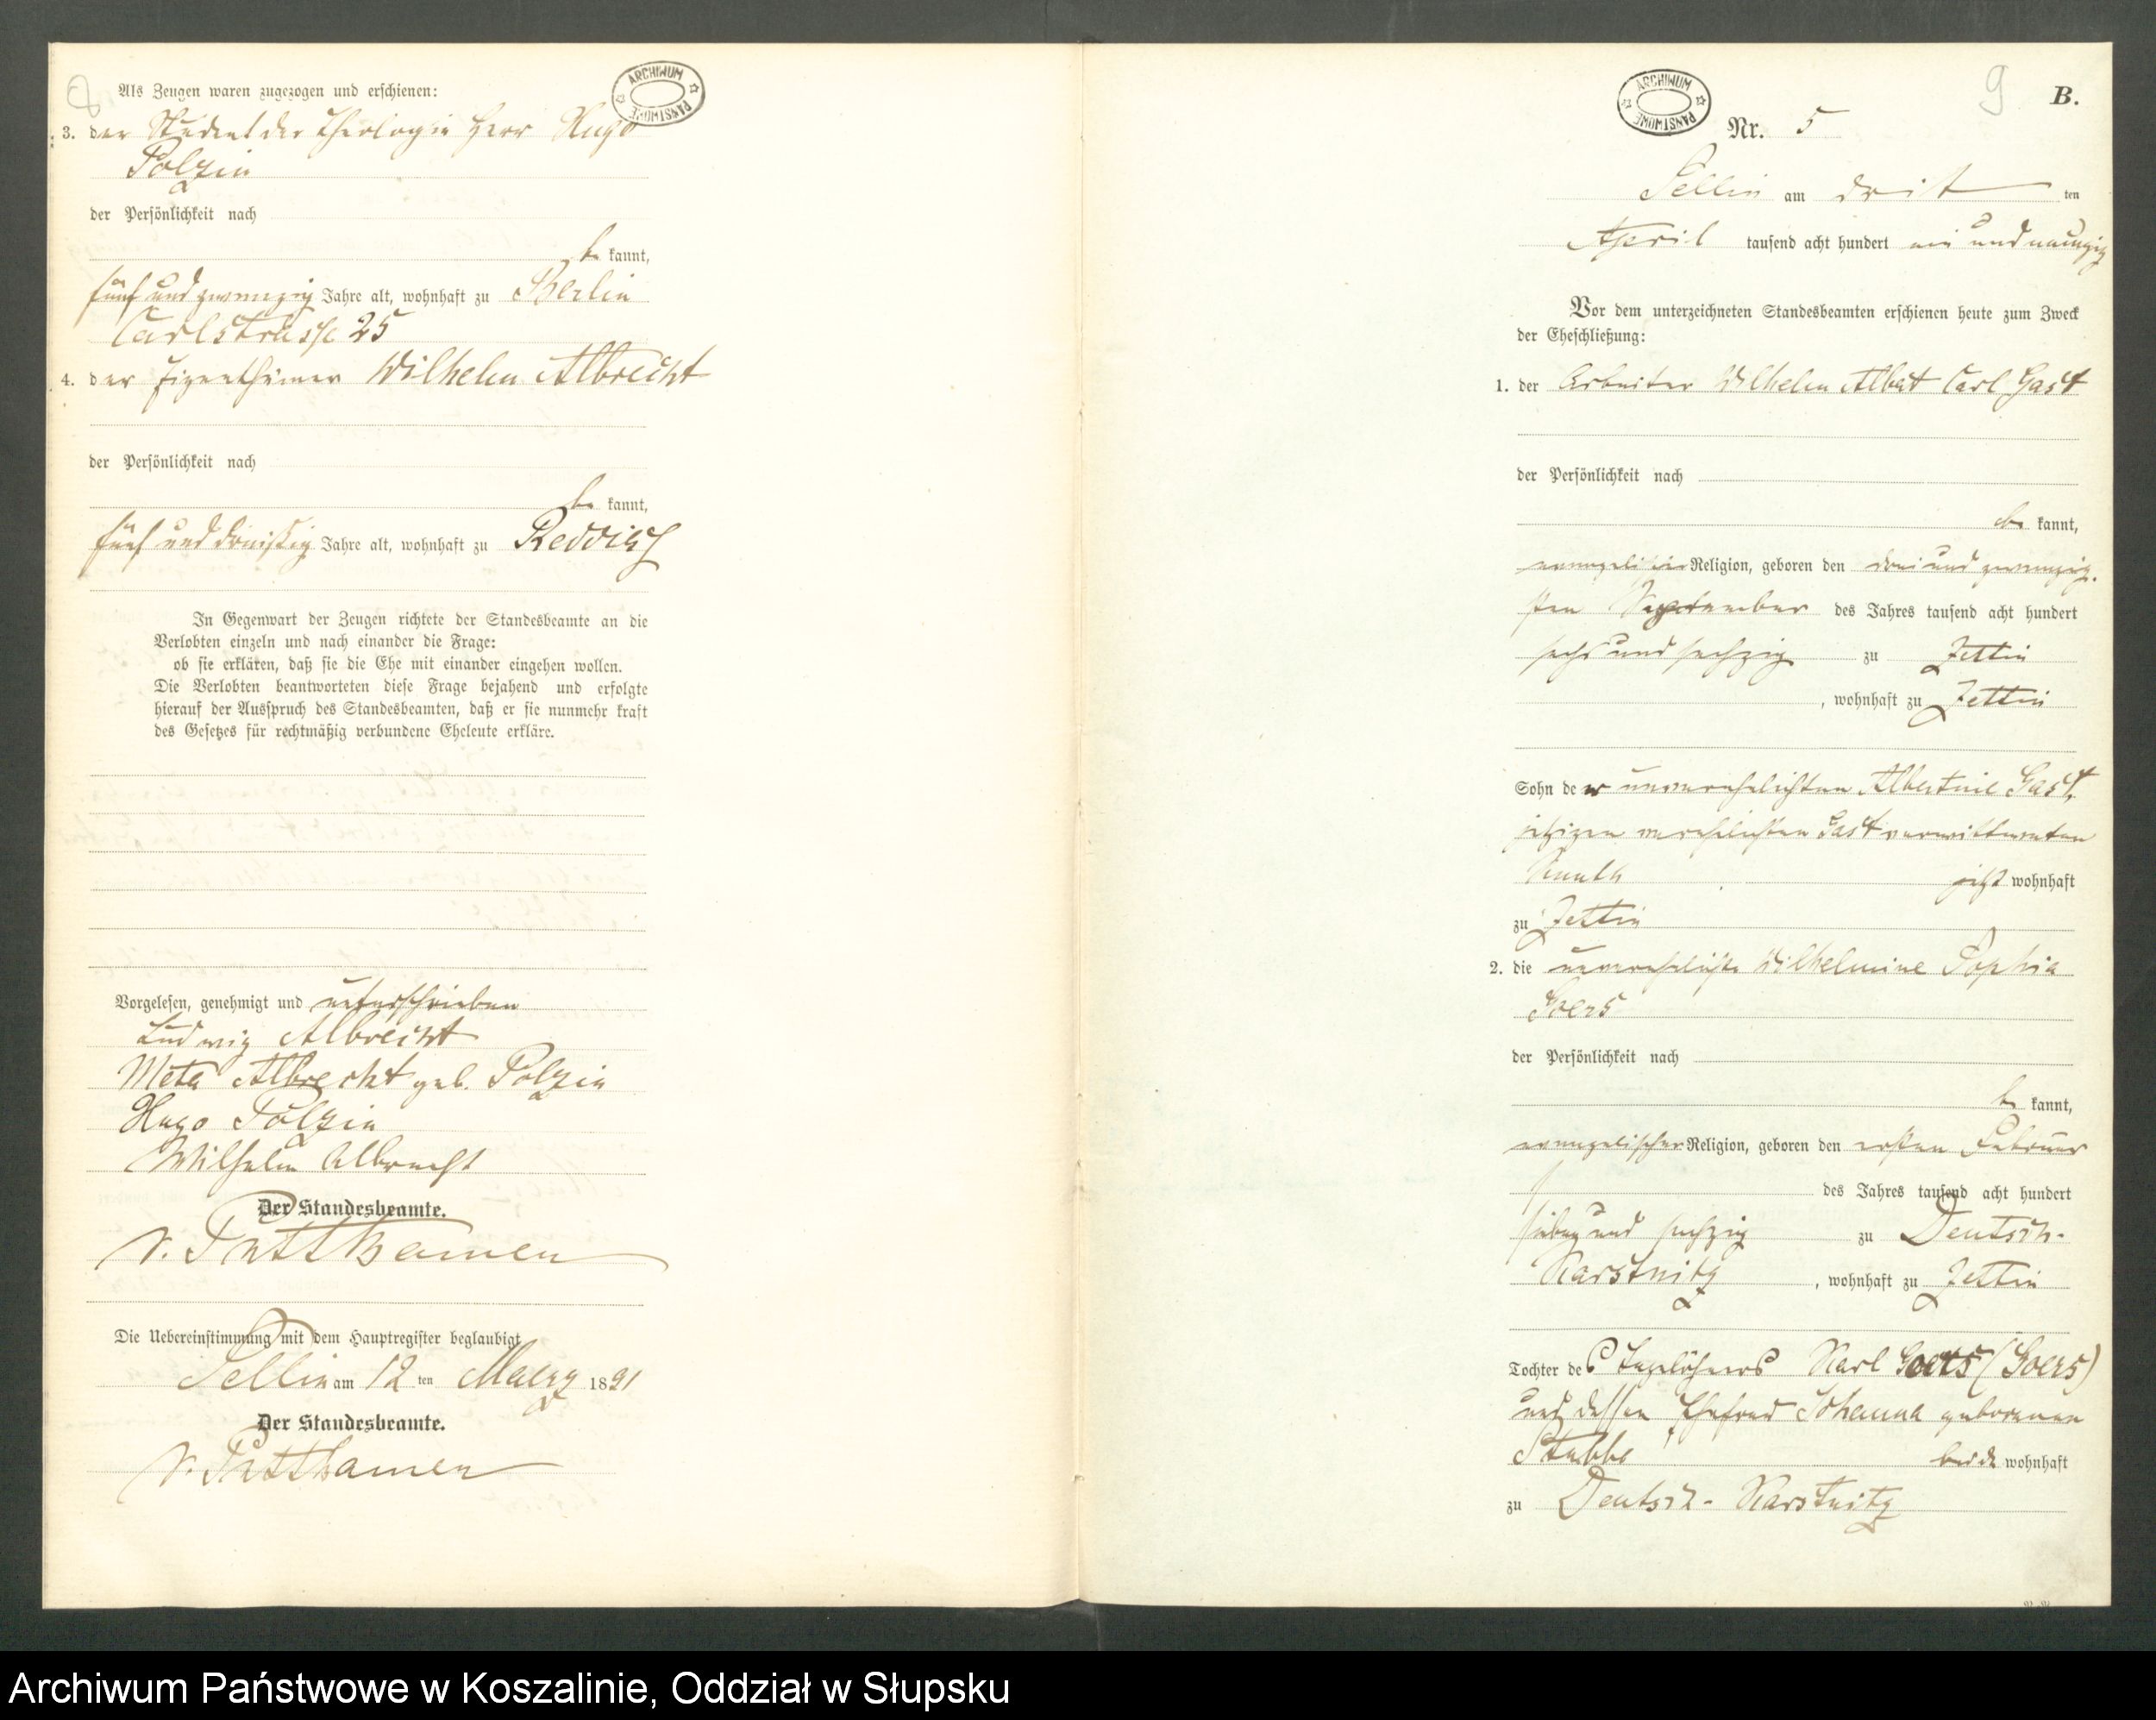 8
ARCHIWUM PAŃSTWOWE
Als Zeugen waren zugezogen und erschienen:
3. der Student der Theologie Herr Hugo
Polzin
der Persönlichkeit nach
be kannt,
fünf und zwanzig Jahre alt, wohnhaft zu Berlin
Carlstrasse 25
4. der Eigenthümer Wilhelm Albrecht
der Persönlichkeit nach
be kannt,
fünf und dreißig Jahre alt, wohnhaft zu
In Gegenwart der Zeugen richtete der Standesbeamte an die
Verlobten einzeln und nach einander die Frage:
ob sie erklären, daß sie die Ehe mit einander eingehen wollen.
Die Verlobten beantworteten diese Frage bejahend und erfolgte
hierauf der Ausspruch des Standesbeamten, daß er sie nunmehr kraft
des Gesetzes für rechtmäßig verbundene Eheleute erkläre.
Vorgelesen, genehmigt und unterschrieben
Ludwig Albrecht
Meta Albrecht geb. Polzin
Hugo Polzin
Wilhelm Albrecht
Der Standesbeamte.
v. Puttkamer
Die Uebereinstimmung mit dem Hauptregister beglaubigt
Sellin am 12 ten Maerz 1891
Der Standesbeamte.
v. Puttkamer
ARCHIWUM PAŃSTWOWE
9
B.
Nr. 5
Sellin am drit ten
April tausend acht hundert ein und neunzig
Vor dem unterzeichneten Standesbeamten erschienen heute zum Zweck
der Eheschließung:
1. der Arbeiter Wilhelm Albert Carl Gast
der Persönlichkeit nach
be kannt,
evangelischer Religion, geboren den drei und zwanzig-
sten September des Jahres tausend acht hundert
sechs und sechzig zu Zettin
, wohnhaft zu Zettin
Sohn der unverehelichten Albertine Gast,
jetzigen verehelichten Gast verwittweten
jetzt wohnhaft
zu Zettin
2. die unverehelichte Wilhelmine Sophia
Goers
der Persönlichkeit nach
be kannt,
evangelischer Religion, geboren den ersten Februar
des Jahres tausend acht hundert
sieben und sechzig zu Deutsch-
Karstnitz , wohnhaft zu Zettin
Tochter des Tagelöhners Karl Goers (Goers)
und dessen Ehefrau Johanna geborenen
Stubbe beide wohnhaft
zu Deutsch-Karstnitz
Archiwum Państwowe w Koszalinie, Oddział w Słupsku